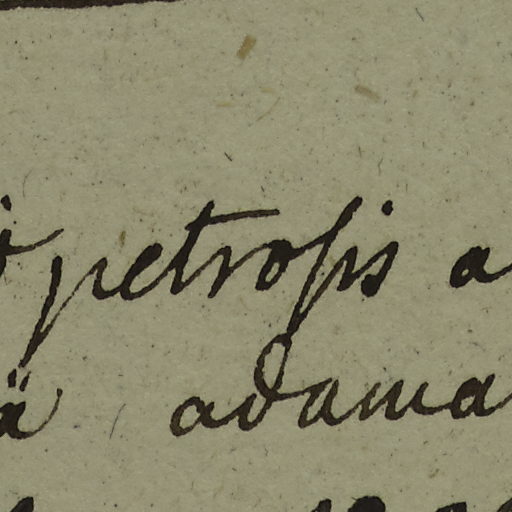 petroſis a
ä adama